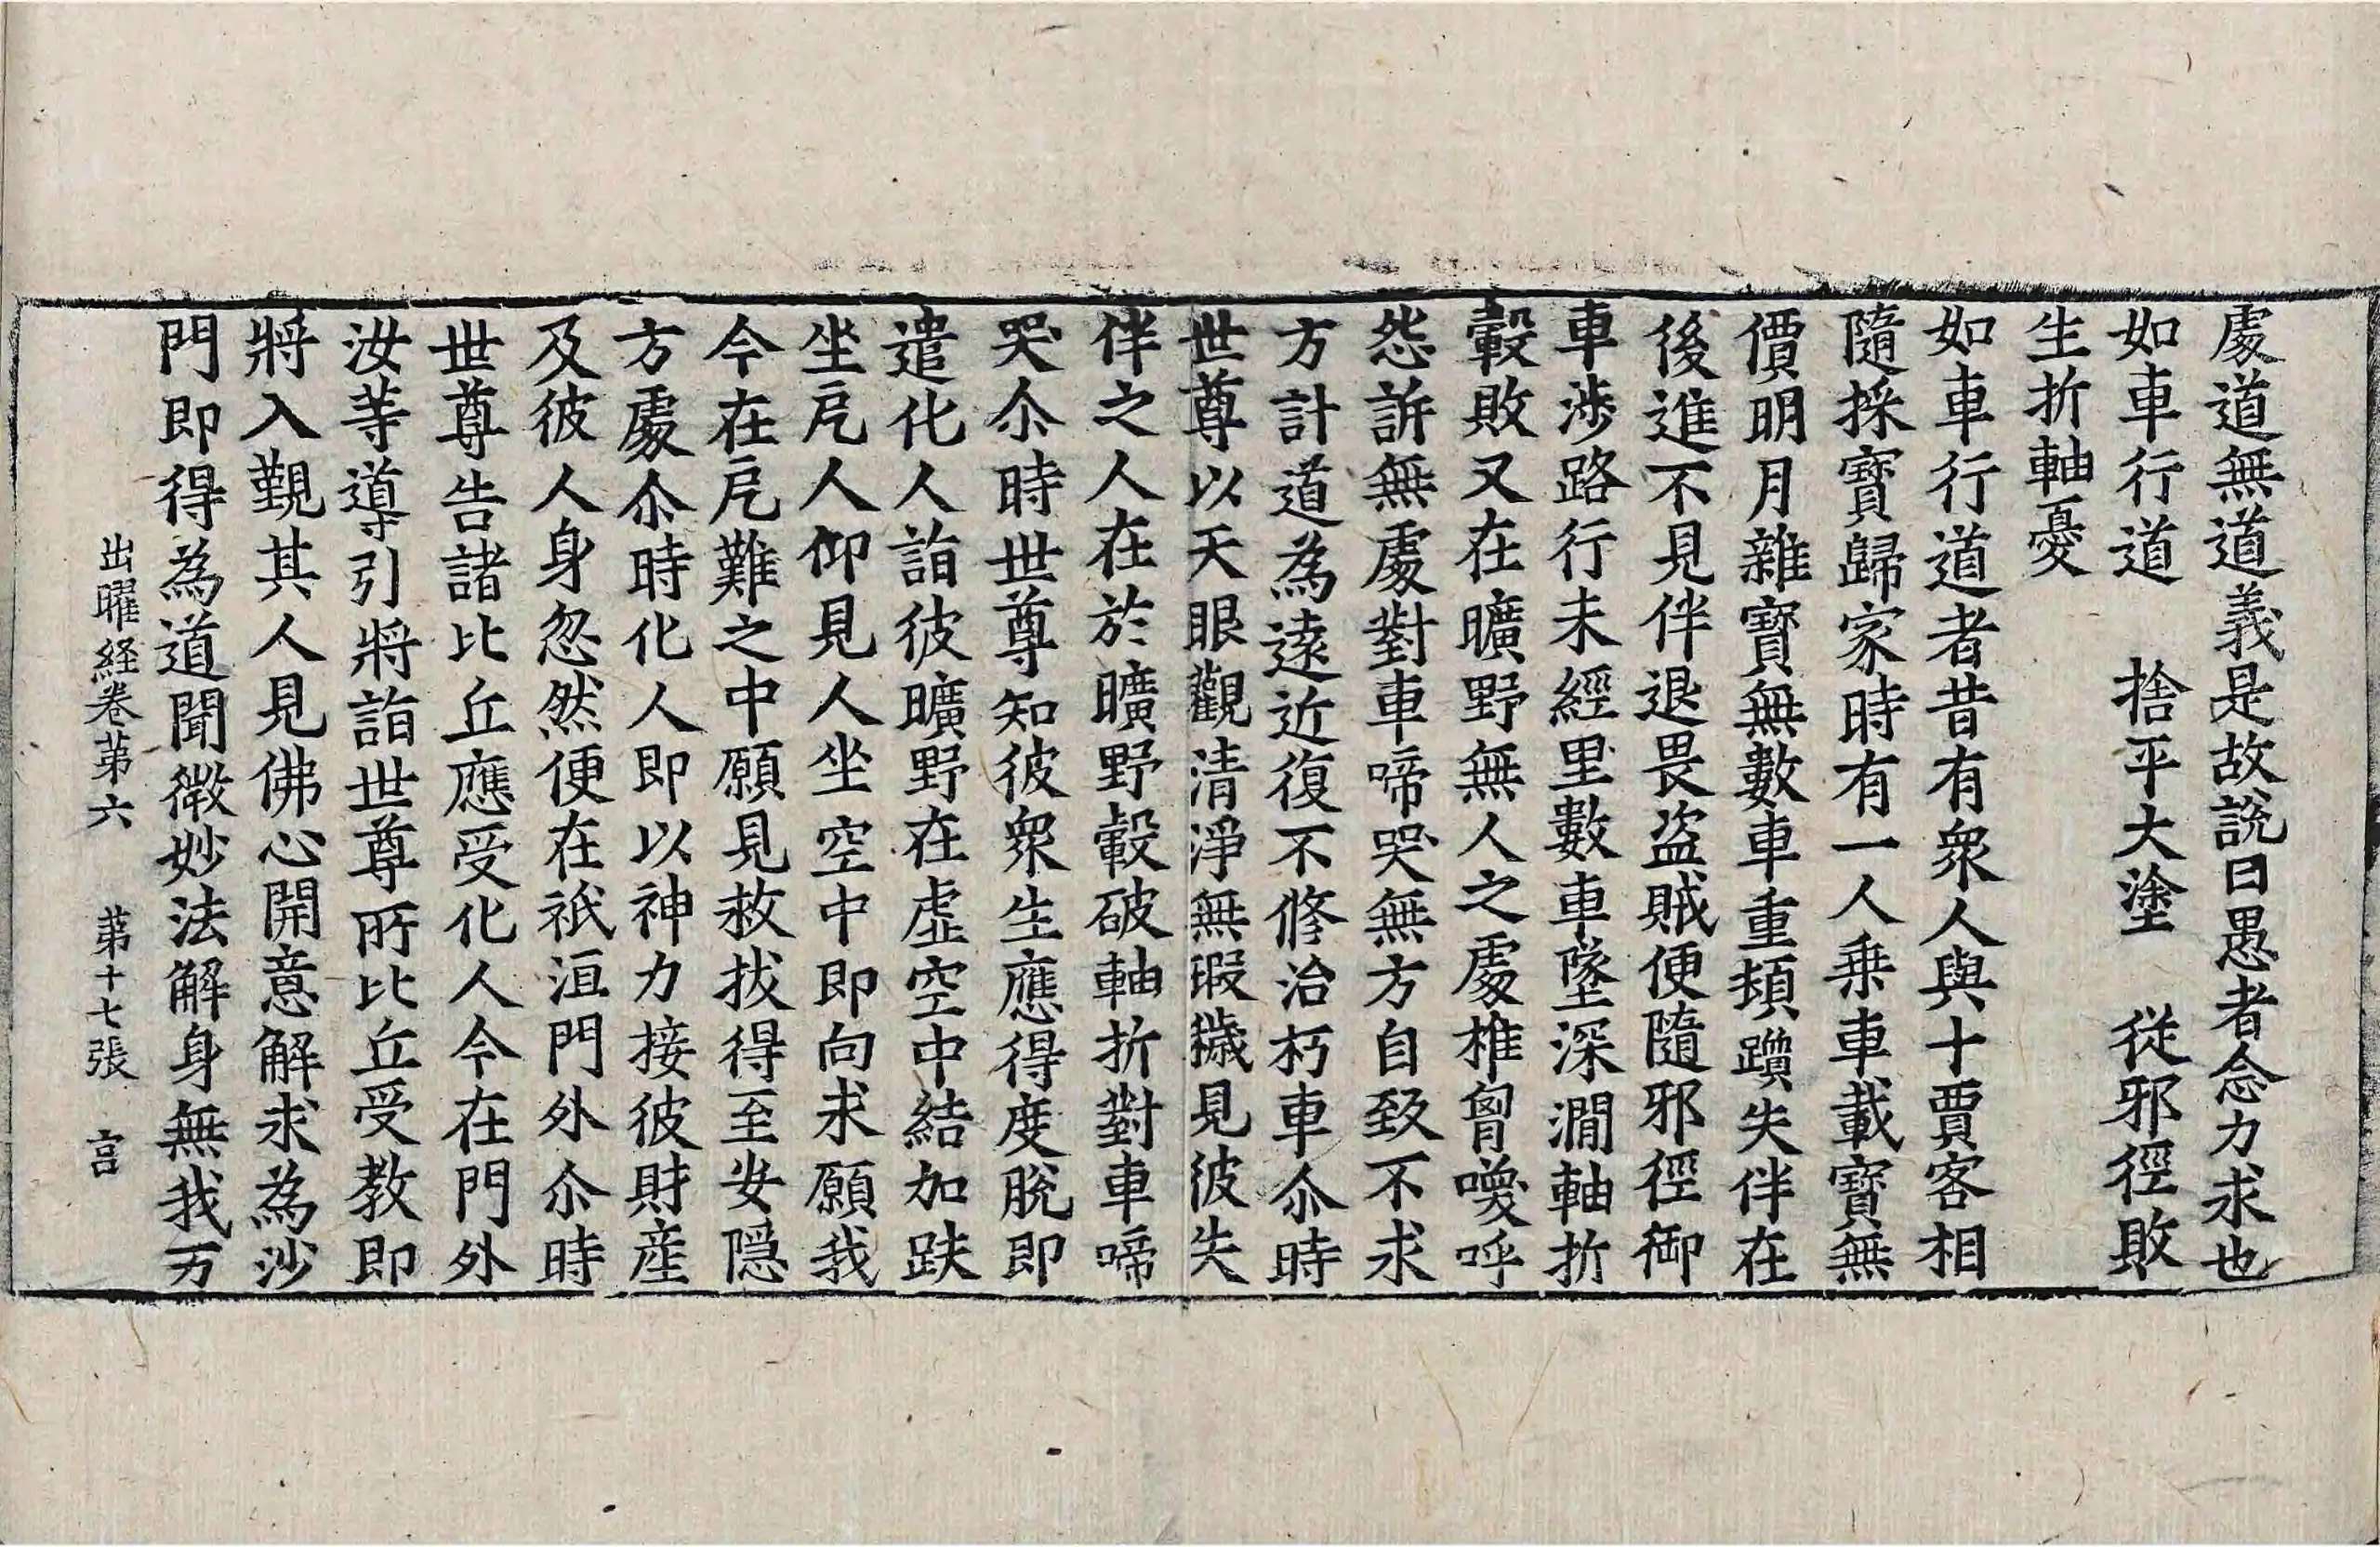 處道無道義是故說曰愚者念力求也
如車行道　捨平大塗　從邪徑敗
生折軸憂
如車行道者昔有衆人與十賈客相
隨採寶歸家時有一人乗車載寶無
價明月雜寶無數車重頓躓失伴在
後進不見伴退畏盗賊便隨邪徑御
車涉路行未經里數車墜深澗軸折
轂敗又在曠野無人之處椎胷喚呼
怨訴無處對車啼哭無方自致不求
方計道為遠近復不修治朽車尒時
世尊以天眼觀清淨無瑕穢見彼失
伴之人在於曠野轂破軸折對車啼
哭尒時世尊知彼衆生應得度脫即
遣化人詣彼曠野在虛空中結加趺
坐戹人仰見人坐空中即向求願我
今在戹難之中願見救拔得至安隠
方處尒時化人即以神力接彼財産
及彼人身忽然便在祇洹門外尒時
世尊告諸比丘應受化人今在門外
汝等導引將詣世尊所比丘受教即
將入覲其人見佛心開意解求為沙
門即得為道聞微妙法解身無我万
出曜経卷苐六　苐十七張　言